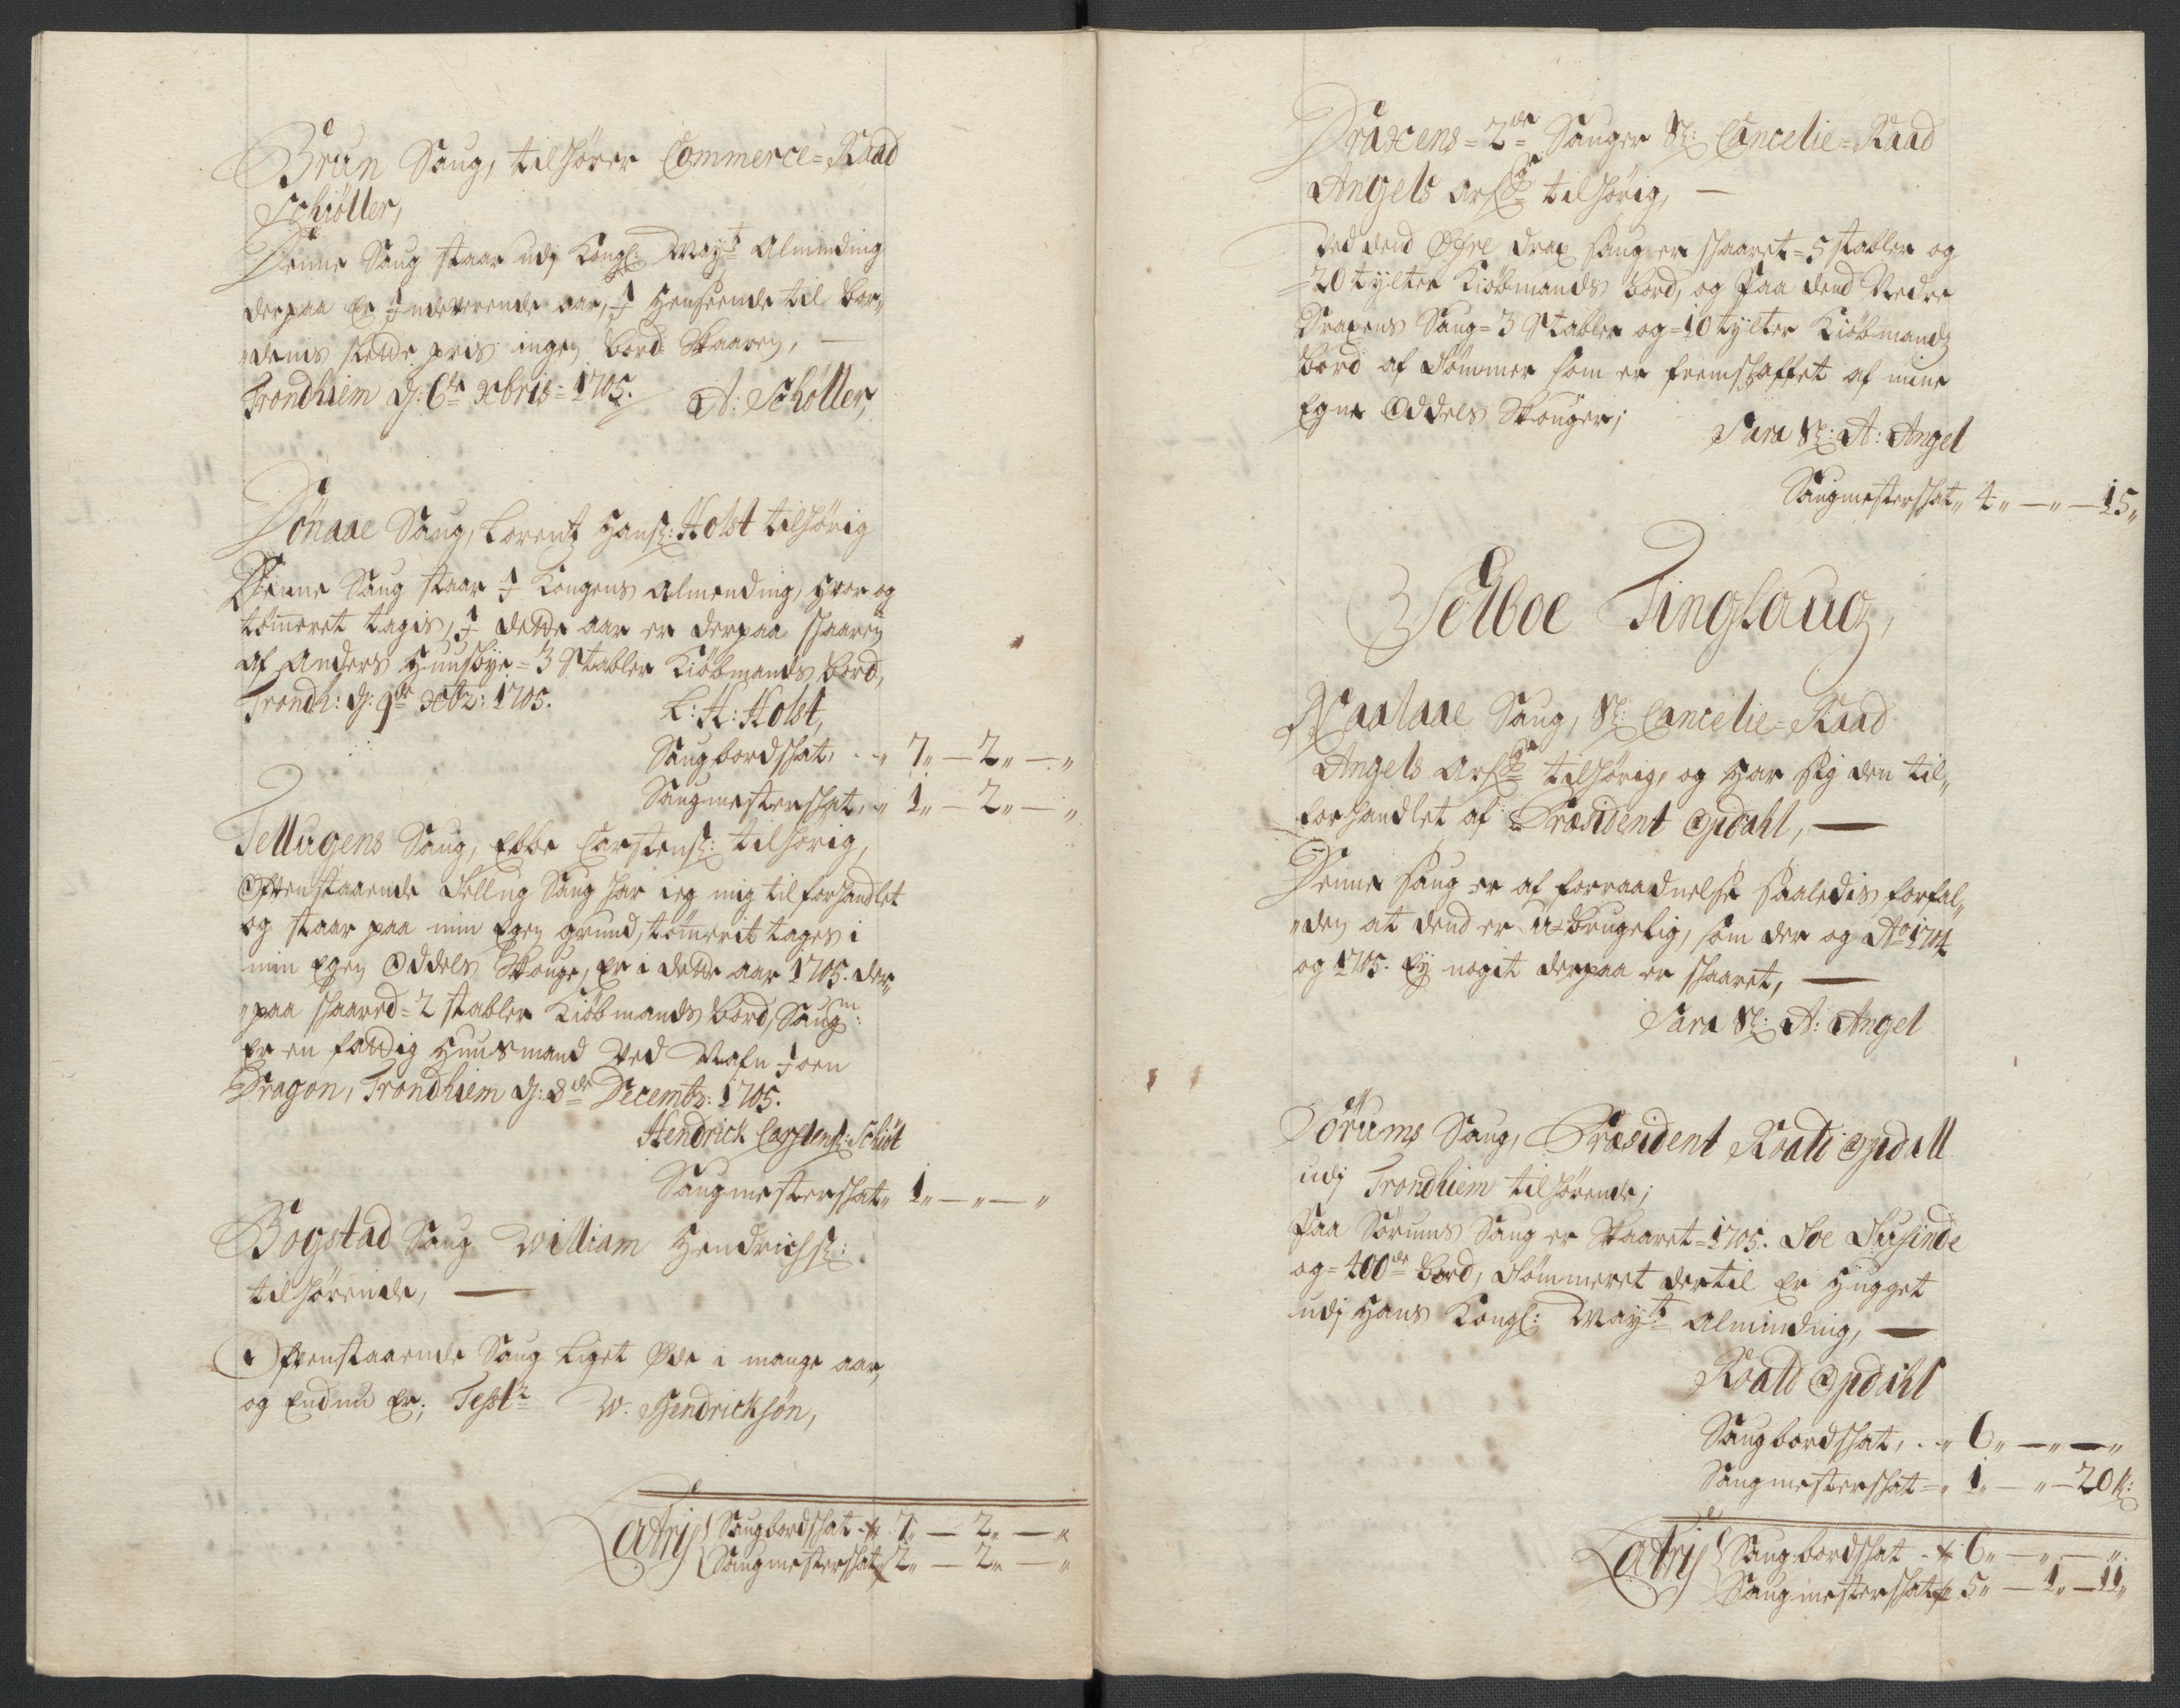 Brun Saug, tilhører Commerce=Raad
Schiöller,
Denne Saug staar udj Kongl: May:ts Alminding
derpaa er Indeverende aar, I henseende til bor,,
,,denis slette pris ingen bord skaaren, —
Trondhiem d: 6te xbris=1705. A: Schøller,
Sönaae Saug, Lorentz Hansl: Holst tilhörig
Denne Saug staar I Kongens Almending, hvor og
tömeret tagis, I dette aar er derpaa skaaren
af Anders Huusbye=3 Stabler Kiöbmands bord,
Trondh: d: 9de xbr: 1705. L: H: Holst,
Saugbordskat, . „ 7„ — 2„ — „
Saugmesterskat, „ 1„ — 2„ — „
Tellugens Saug, Ebbe Carstensl: tilhörig,
Ofvenstaaende Tellug Saug har ieg mig tilforhandlet
og staar paa min Egen grund, tömerit tages i
min Egen Oddels Skouge, Er i dette aar 1705. der,,
,,paa skaared=2 stabler Kiöbmands bord, Saugm:
er en fattig Huusmand ved Nafn Joen
Dragon, Trondhiem d: 8de Decembr: 1705.
Hendrick Carstensl: Schiöt
Saugmesterskat„ 1„ — „ — „
Bogstad Saug William Hendrichsl:
tilhörende, —
Ofvenstaaende Saug liget Öde i mange aar,
og Endnu er; Test: W. Hendricksön,
Latris Saugbordskat - 7„ — 2„ — „
Saugmesterskat 2„ — 2„ — „
Draxens=2de Sauger Sl: Cancelie=Raad
Angels Arf: tilhörig, —
Ved dend Öfre Drax saug er skaaret=5 stabler og
=20 tylter Kiöbmands bord, og Paa dend Nedre
Draxens Saug=3 Stabler og=10 tylter Kiöbmands
bord af Tömmer som er fremskaffet af mine
Egne Oddels Skouger; Sara Sl: A: Angel
Saugmesterskat„ 4„ — „ — 15„
Selboe Tinglaug,
Raalaae Saug, Sl: Cancelie=Raad
Angels Arf: tilhörig, og har sig den til,,
forhandlet af Præsident Opdahl, —
Denne saug er af forraadnelse saaledis forfal,,
,,den at dend er u-brugelig, som der og Ao 1704
og 1705. Ey nogit derpaa er skaaret, —
Sara Sl: A: Angel
Sörums Saug, Præsident Roald Opdall
udj Trondhiem tilhörende;
Paa Sörums Saug er Skaaret=1705. Toe Tusinde
og=400de bord, Tömmeret dertil er hugget
udj Hans Kongl: May:ts Alminding, —
Roald Opdahl
Saugbordskat, . „ 6„ — „ — „
Saugmesterskat=„ 1„ — „ — 20 s:
Latris Saugbordskat - 6„ — „ — „
Saugmesterskat 5„ — 1„ — 11„